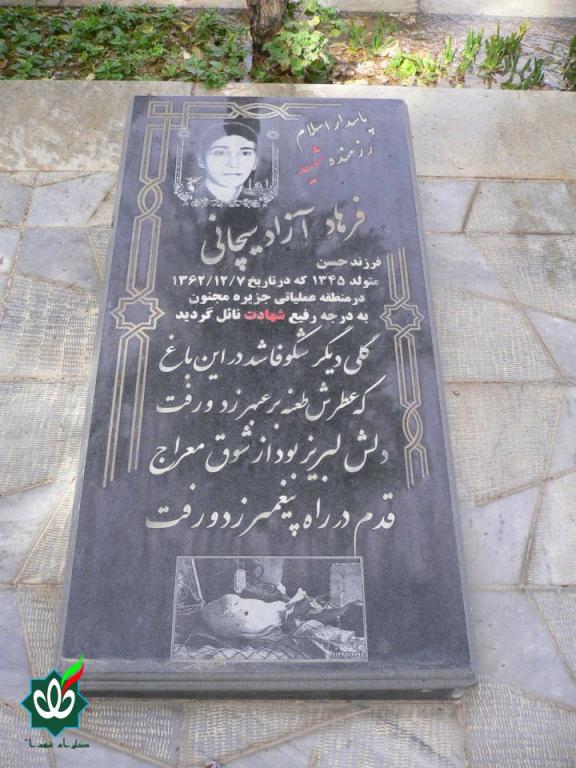 پاسدار اسلام
رزمنده شهید
فرهاد آزاد سیچانی
فرزند حسن
متولد ۱۳۴۵ که در تاریخ ۱۳۶۲/۱۲/۷
در منطقه عملیاتی جزیره مجنون
به درجه رفیع شهادت نائل گردید
گلی دیگر شکوفا شد در این باغ
که عطرش طعنه بر عبهر زد و رفت
دلش لبریز بود از شوق معراج
قدم در راه پیغمبر زد و رفت
گلزار شهدا